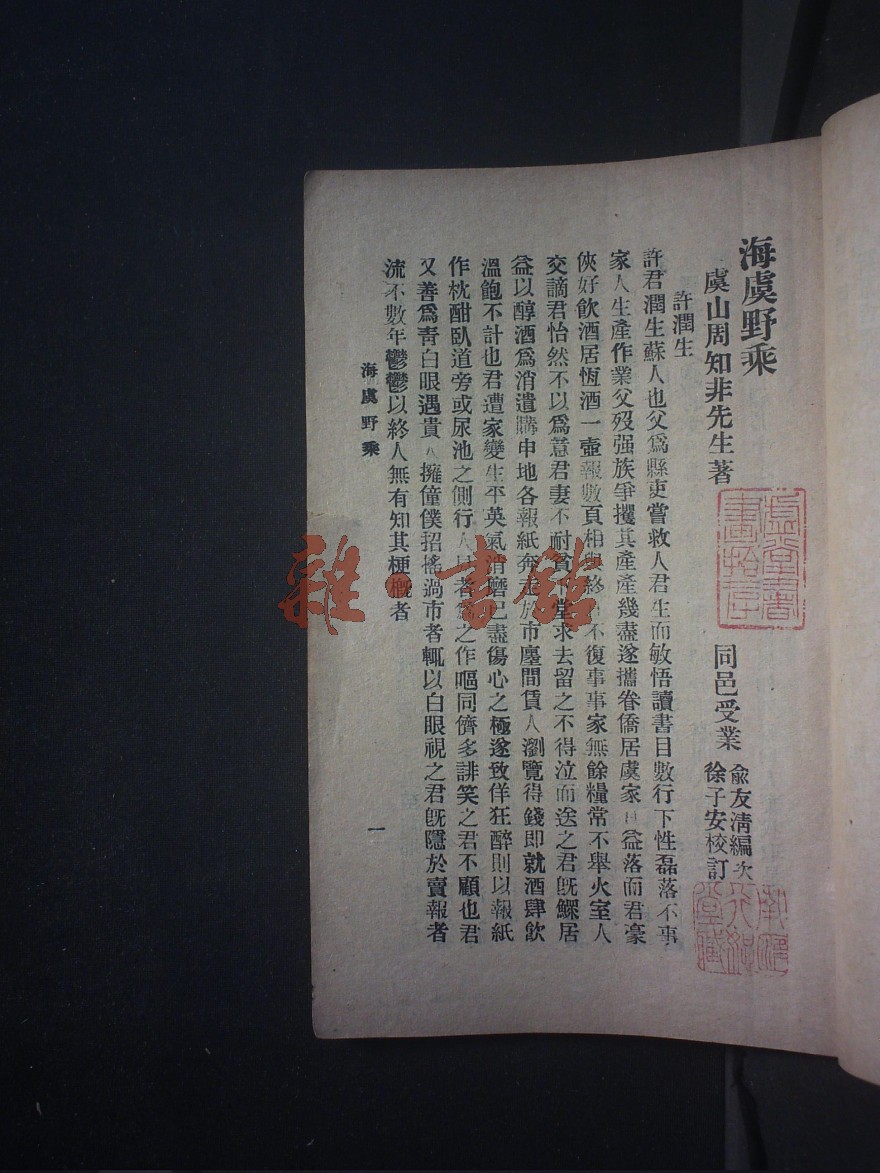 海虞野乘
虞山周知非先生著
同邑受業
俞友清編次
徐子安校訂
許潤生
許君潤生蘇人也父爲縣吏嘗救人君生而敏悟讀書目數行下性磊落不事
家人生產作業父歿强族爭攫其產產幾盡遂攜眷僑居虞家日益落而君豪
俠好飲酒居恆酒一壺報數頁相與終不復事事家無餘糧常不舉火室人
交謫君怡然不以爲意君妻不耐貧下堂求去留之不得泣而送之君旣鰥居
益以醇酒爲消遣購申地各報紙奔走於市廛間賃人瀏覽得錢卽就酒肆飲
溫飽不計也君遭家變生平英氣消磨已盡傷心之極遂致佯狂醉則以報紙
作枕酣臥道旁或尿池之側行人見者爲之作嘔同儕多誹笑之君不顧也君
又善爲青白眼遇貴人擁僮僕招搖過市者輒以白眼視之君旣隱於賣報者
流不數年鬱鬱以終人無有知其梗概者
海虞野乘
一
雜·書館